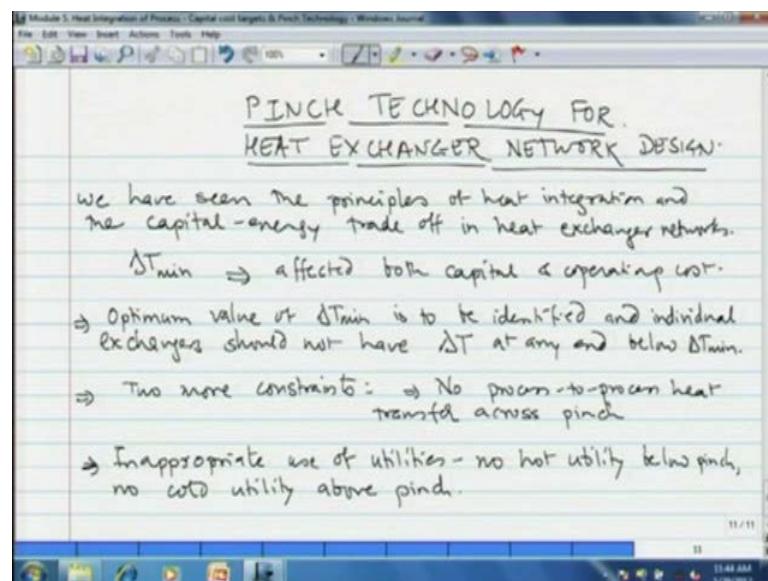 Module 5. Heat Integration of Process - Capital cost targets & Pinch Technology - Windows Journal
File Edit View Insert Actions Tools Help
100%
PINCH TECHNOLOGY FOR
HEAT EXCHANGER NETWORK DESIGN.
we have seen the principles of heat integration and
the capital-energy trade off in heat exchanger networks.
ΔTmin ⇒ affected both capital & operating cost.
⇒ Optimum value of ΔTmin is to be identified and individual
exchangers should not have ΔT at any end below ΔTmin.
⇒ Two more constraints: ⇒ No process-to-process heat
transfer across pinch
⇒ Inappropriate use of utilities - no hot utility below pinch,
no cold utility above pinch.
11/11
11
11:44 AM